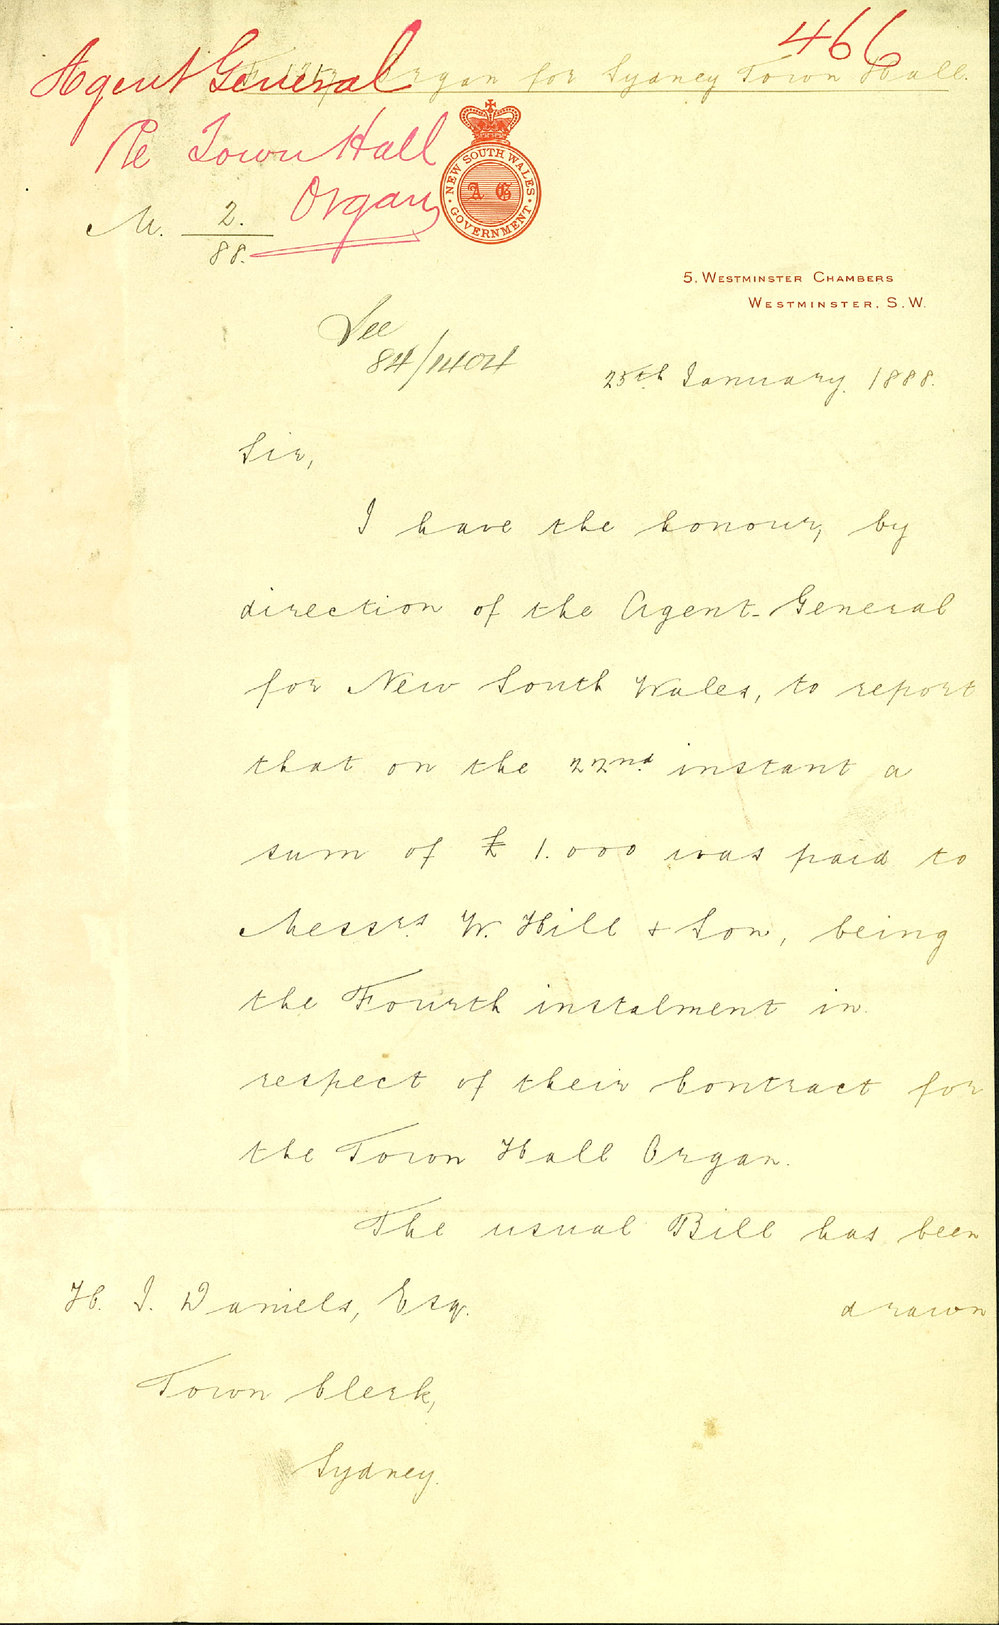 466
Agent General
Organ for Sydney Town Hall.
Re Town Hall
Organ
M. 2.
88.
NEW SOUTH WALES
A G
GOVERNMENT
5, WESTMINSTER CHAMBERS
WESTMINSTER, S.W.
See
84/1404
25th January, 1888.
Sir,
I have the honour, by
direction of the Agent-General
for New South Wales, to report
that on the 22nd instant a
sum of £1.000 was paid to
Messrs. W. Hill & Son, being
the Fourth instalment in
respect of their Contract for
the Town Hall Organ.
The usual Bill has been
drawn
H. J. Daniels, Esq.
Town Clerk,
Sydney.